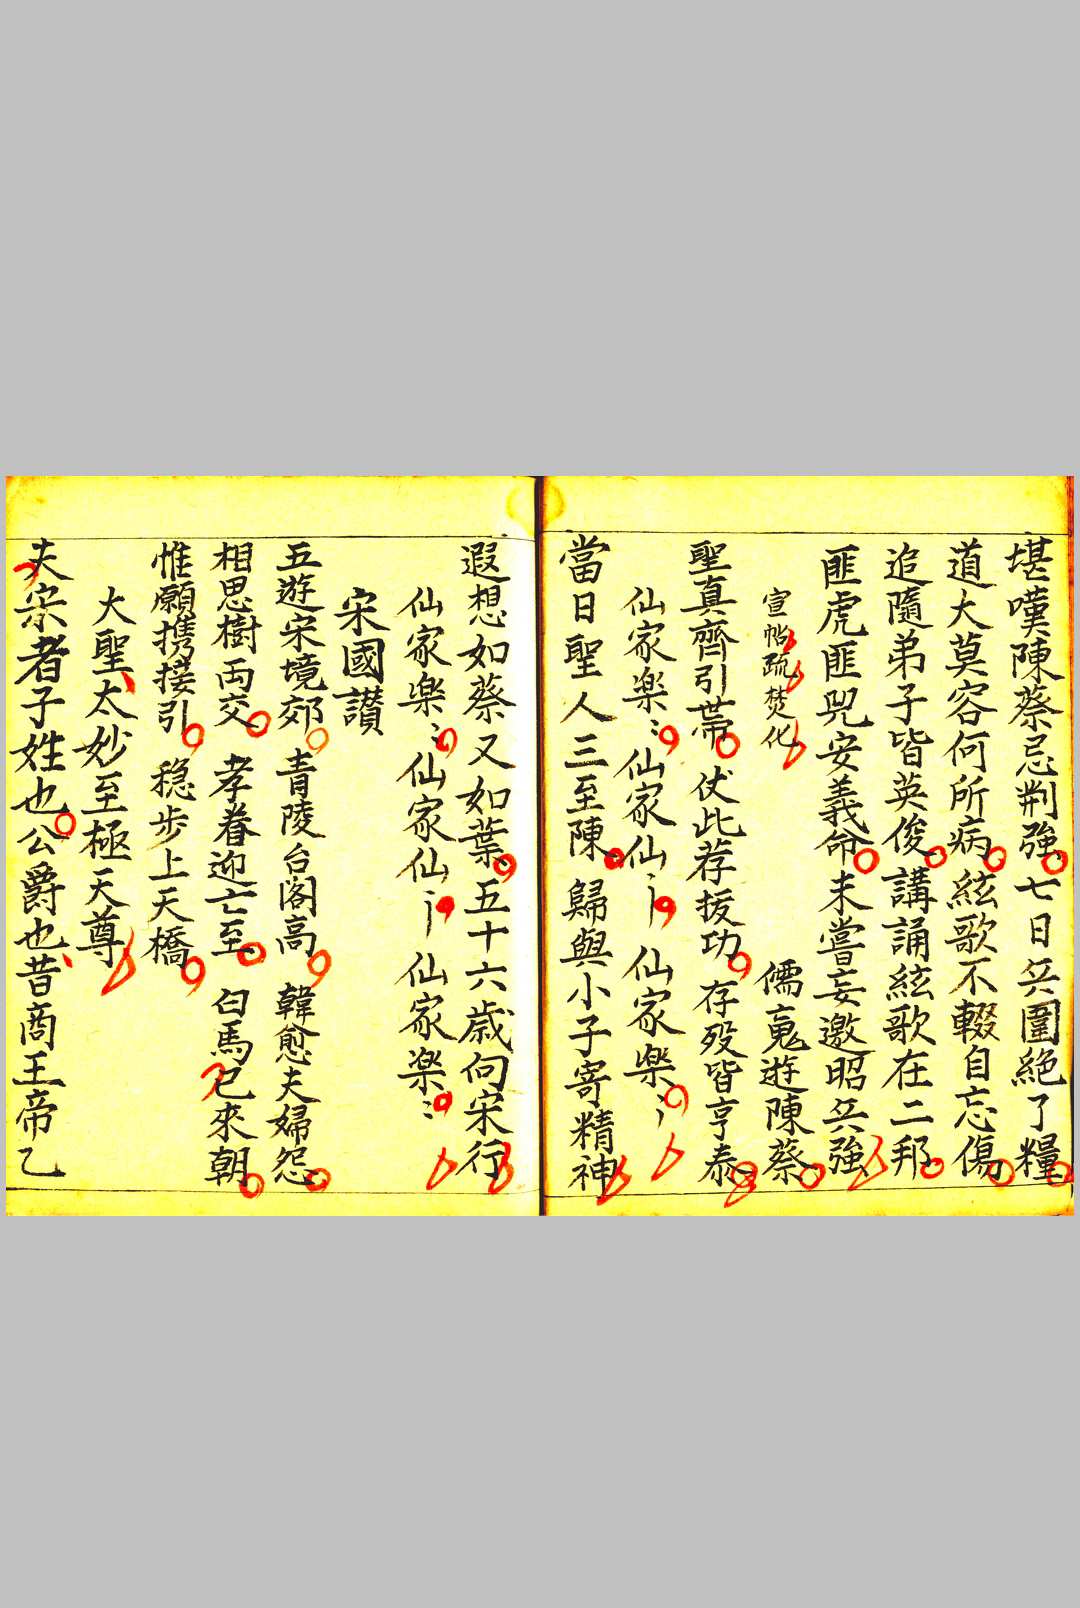 堪嘆陳蔡忌荆強七日兵圍絕了糧
道大莫容何所病絃歌不輟自忘傷
追隨弟子皆英俊講誦絃歌在二邦
匪虎匪兕安義命未嘗妄邀昭兵強
宣帖疏焚化 儒寃遊陳蔡
聖真齊引帶 仗此荐拔功 存殁皆亨泰
仙家楽〻仙家仙〻仙家楽〻
當日聖人三至陳 歸與小子寄精神
遐想如蔡又如葉五十六歲向宋行
仙家楽〻仙家仙〻仙家楽〻
宋國讃
五遊宋境郊 青陵台閣高 韓愈夫婦怨
相思樹両交 孝眷迎亡至 白馬已來朝
惟願携接引 穏步上天橋
大聖太妙至極天尊
夫宋者子姓也公爵也昔商王帝乙